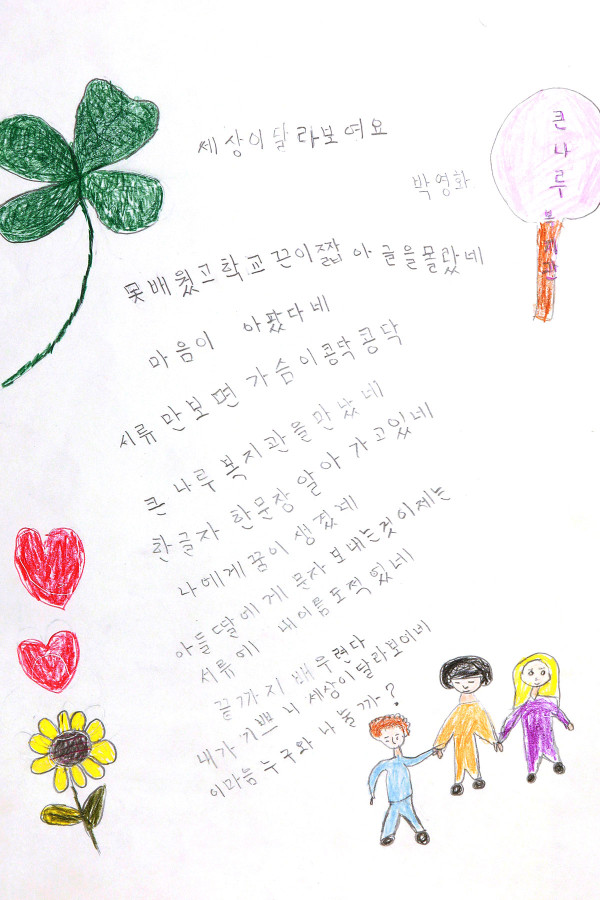 세상이달라보여요
박영화
큰
나
루
복
지
관
못배웠고학교끈이짧아 글을몰랐네
마음이 아팠다네
서류만보면 가슴이콩닥콩닥
큰 나루 복지관을만났네
한글자 한문장 알아 가고있네
나에게꿈이 생겼네
아들딸에게 문자 보내는것이제는
서류에 내이름도적있네
끝까지 배우련다
내가 기쁘니 세상이달라보이네
이마음누구와 나눌까?